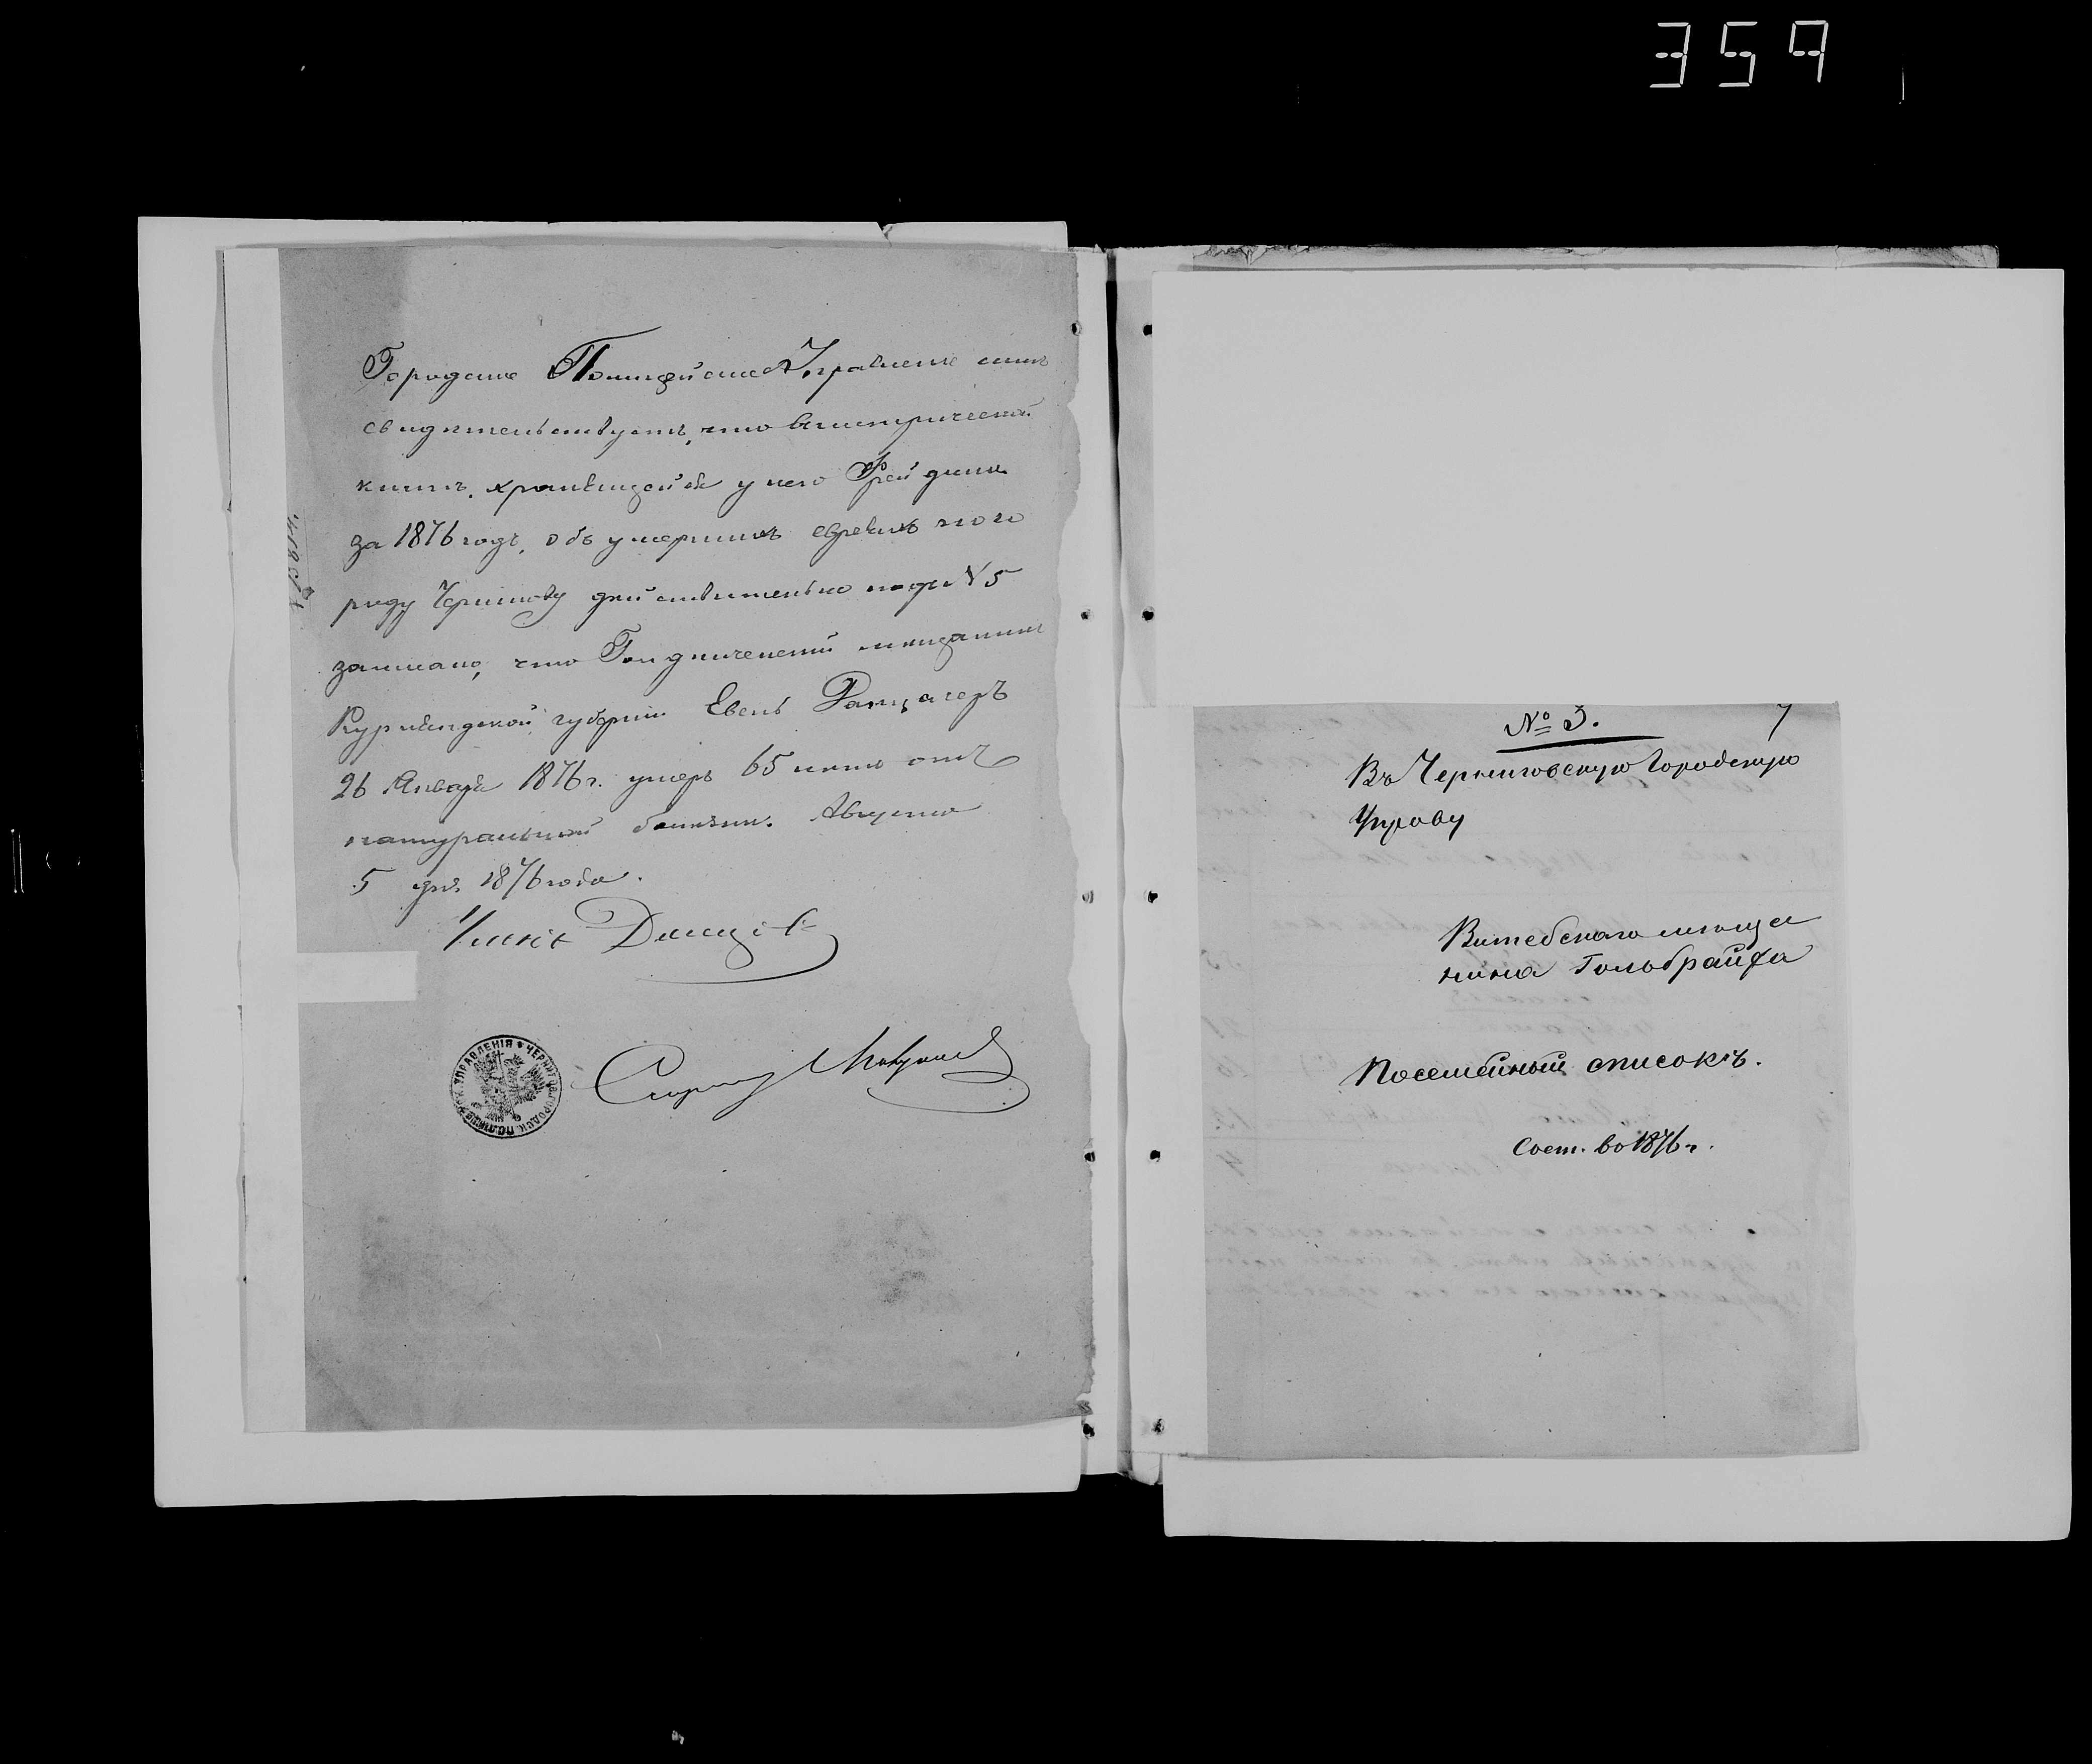 359
Городское Полицейское Управленіе симъ
свидѣтельствуетъ, что въ метрической
книгѣ, хранящейся у него
за 1876 годъ, объ умершихъ евреяхъ по го
роду Чернигову дѣйствительно подъ № 5
записано, что мѣщанинъ
Курляндской губерніи
26 Января 1876 г. умеръ 65 лѣтъ отъ
натуральной болѣзни. Августа
5 дня 1876 года.
УПРАВЛЕНІЯ ЧЕРНИГОВ. ГОРОДСК. ПОЛИЦ
№ 3.
7
Въ Черниговскую Городскую
Управу
Витебскаго мѣща
нина Гольбрайха
Посемейный списокъ.
Сост. въ 1876 г.